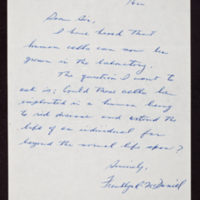 Dear Sir,
I have heard that
human cells can now be
grown in the laboratory.
The question I want to
ask is: Could these cells be
implanted in a human being
to rid disease and extend the
life of an individual far
beyond the normal life span?
Sincerely,
McDaniel